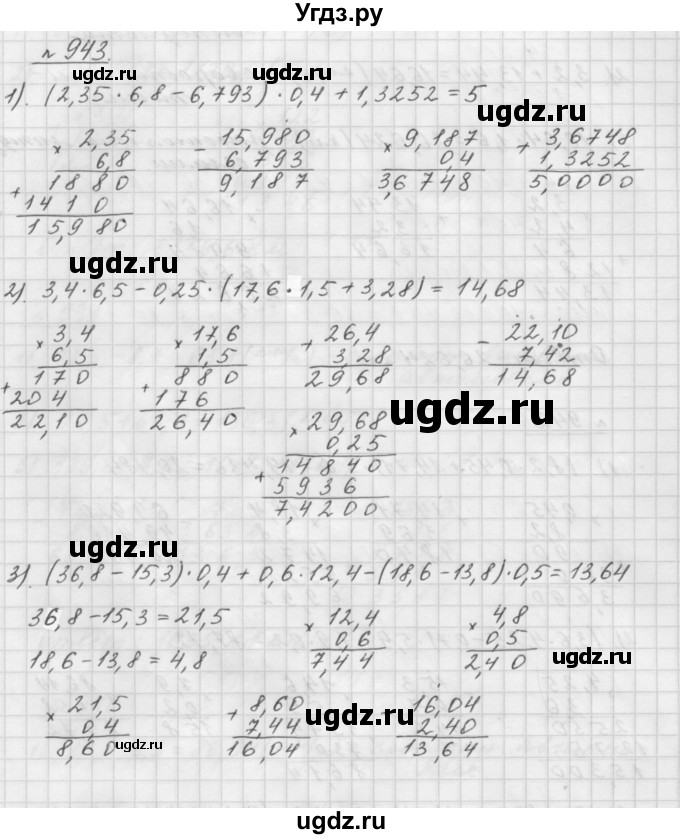 Угдз.ру
№ 943.
ugdz.ru ugdz.ru ugdz.ru
1). (2,35 · 6,8 − 6,793) · 0,4 + 1,3252 = 5
× 2,35
6,8
1880
+ 1410
15,980
− 15,980
6,793
9,187
× 9,187
0,4
3,6748
+ 3,6748
1,3252
5,0000
ugdz.ru ugdz.ru
2) 3,4 · 6,5 − 0,25 · (17,6 · 1,5 + 3,28) = 14,68
× 3,4
6,5
170
+ 204
22,10
× 17,6
1,5
880
+ 176
26,40
+ 26,4
3,28
29,68
− 22,10
7,42
14,68
ugdz.ru
× 29,68
0,25
14840
+ 5936
7,4200
ugdz.ru
ugdz.ru
3). (36,8 − 15,3) · 0,4 + 0,6 · 12,4 − (18,6 − 13,8) · 0,5 = 13,64
36,8 − 15,3 = 21,5
18,6 − 13,8 = 4,8
× 12,4
0,6
7,44
× 4,8
0,5
2,40
ugdz.ru ugdz.ru
× 21,5
0,4
8,60
+ 8,60
7,44
16,04
− 16,04
2,40
13,64
ugdz.ru
ugdz.ru
ugdz.ru